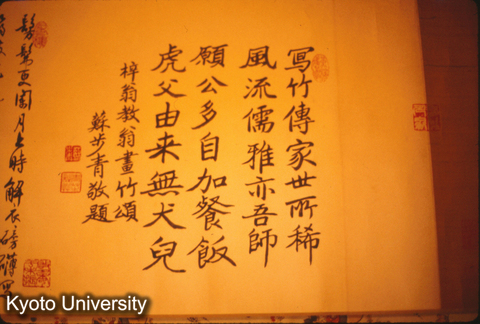 寫竹傳家世所稀
風流儒雅亦吾師
願公多自加餐飯
虎父由来無犬兒
梓翁教翁畫竹頌
蘇步青敬題
月上時解衣磅礴
Kyoto University